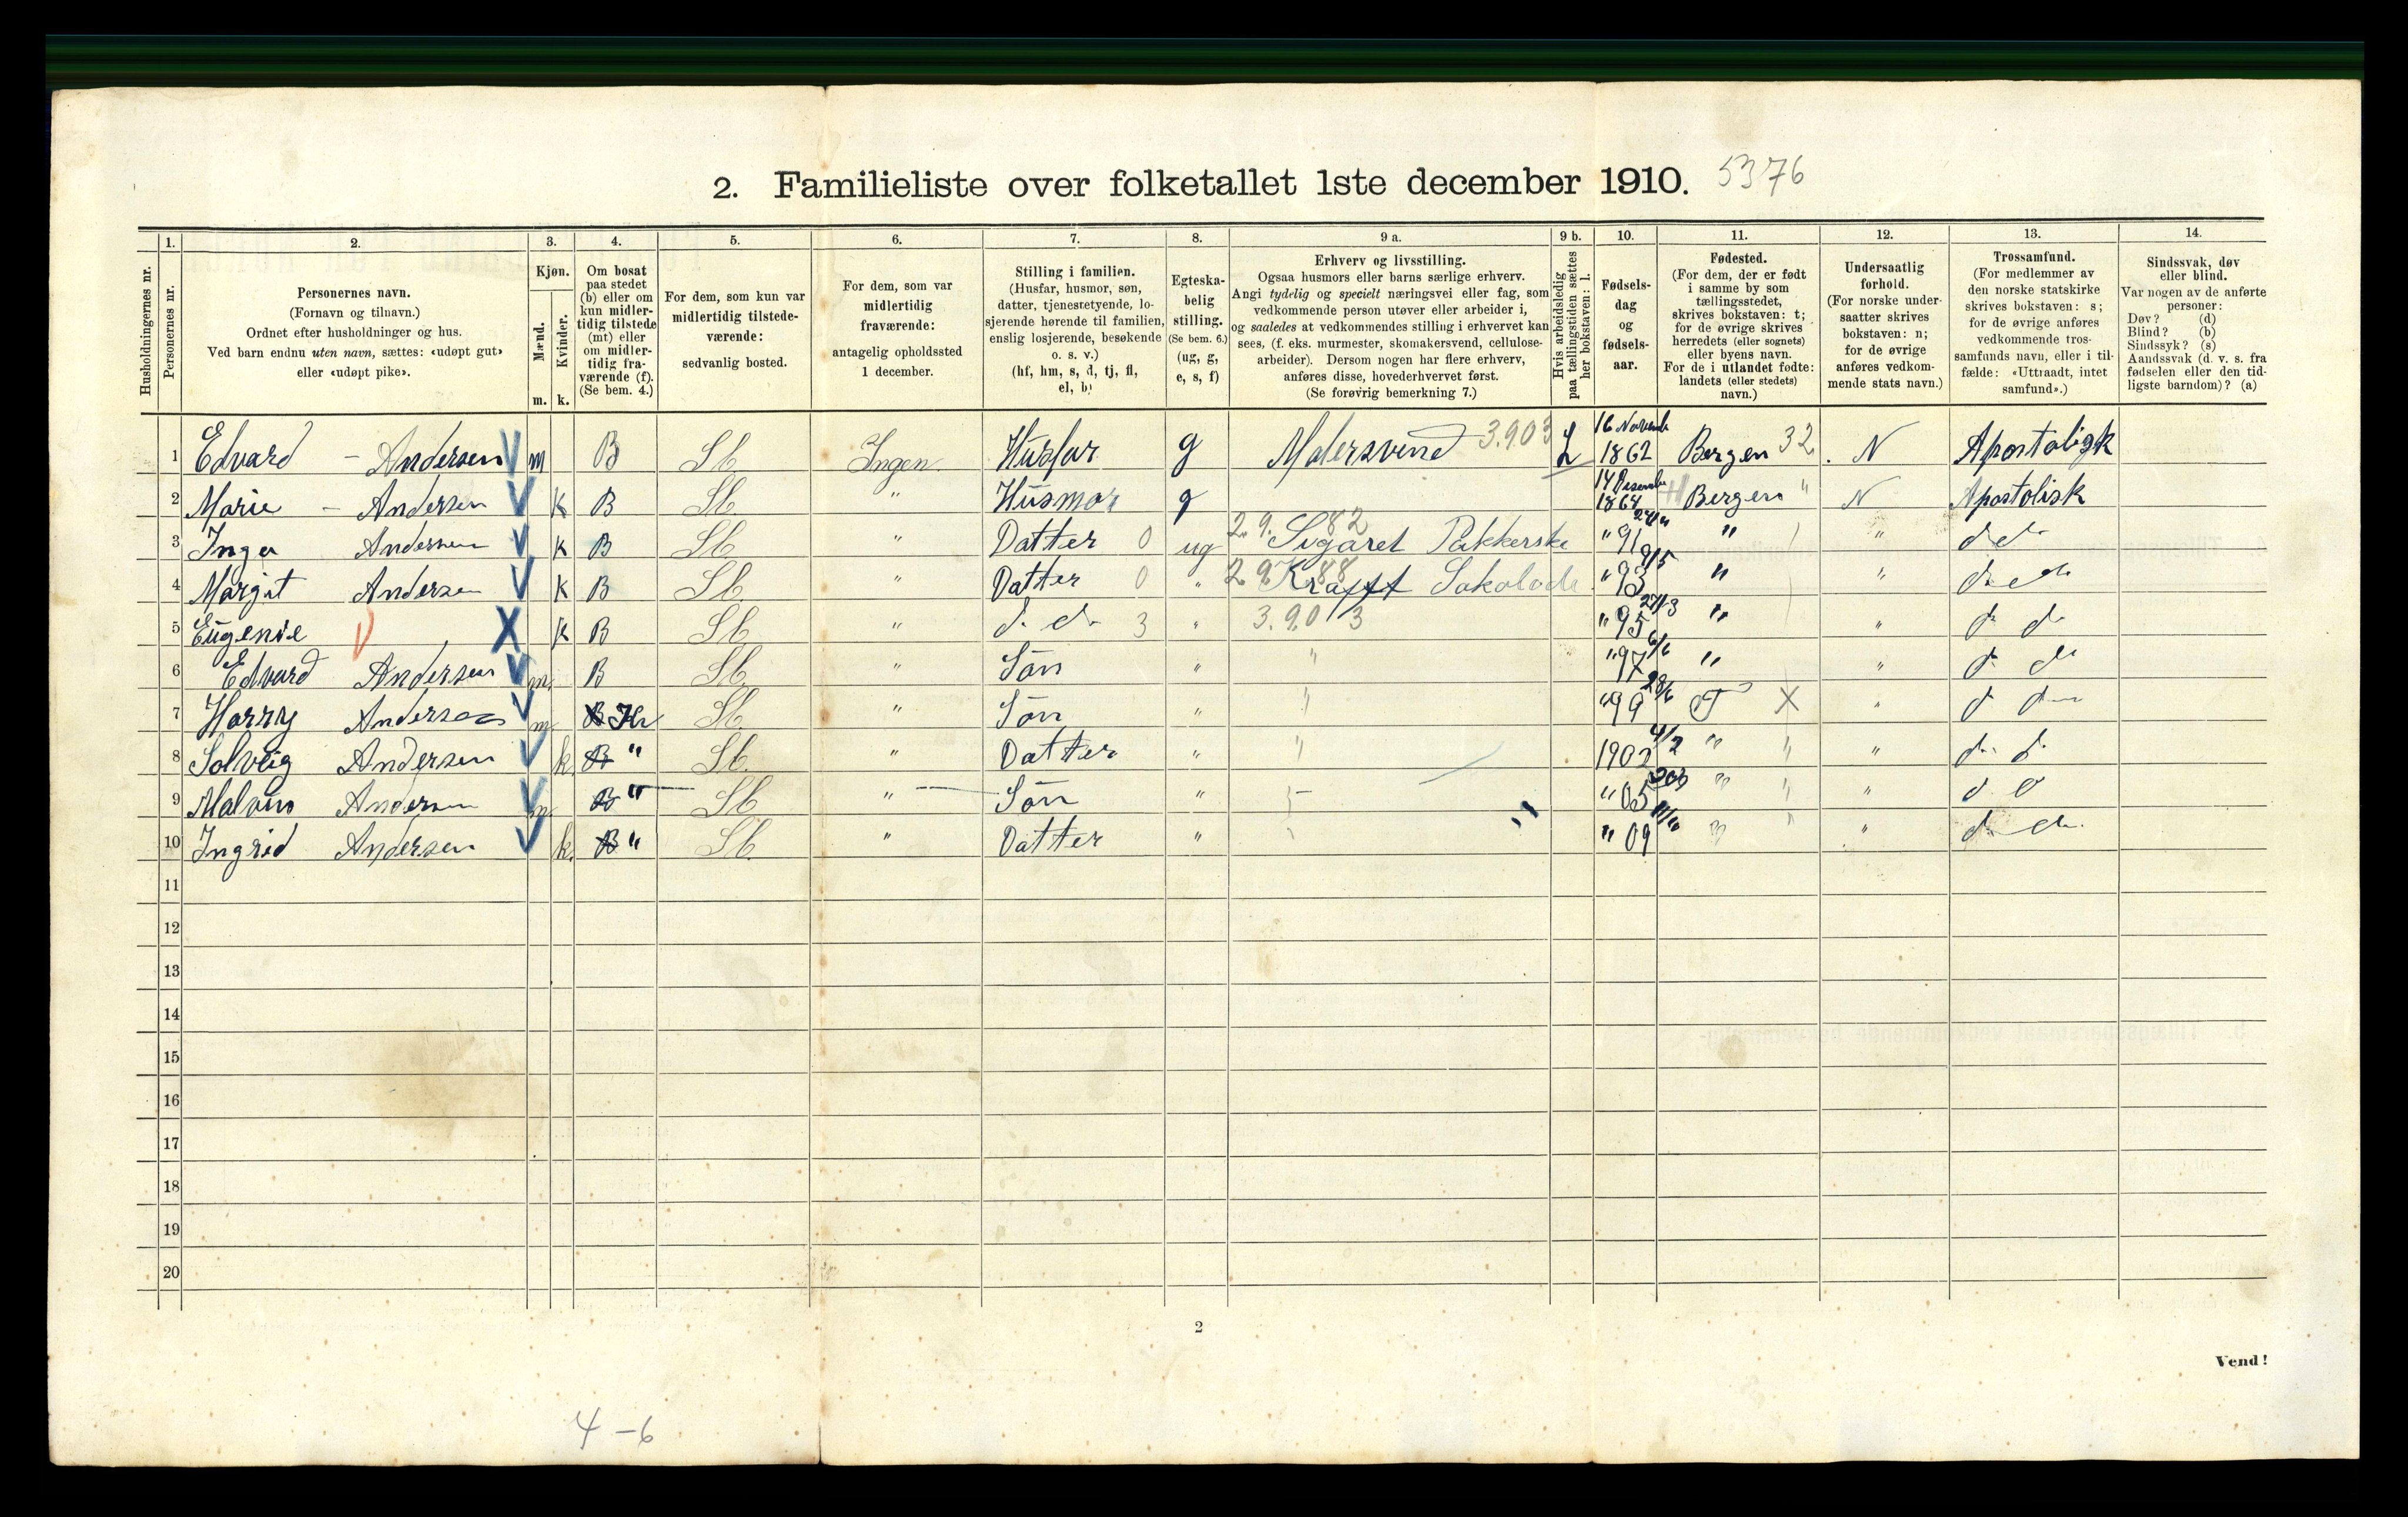 2. Familieliste over folketallet 1ste december 1910. 5376
Husholdningernes nr.
1. Personernes nr.
2. Personernes navn. (Fornavn og tilnavn.) Ordnet efter husholdninger og hus. Ved barn endnu uten navn, sættes: «udøpt gut» eller «udøpt pike».
3. Kjøn. Mænd. m. Kvinder. k.
4. Om bosat paa stedet (b) eller om kun midlertidig tilstede (mt) eller om midlertidig fraværende (f). (Se bem. 4.)
5. For dem, som kun var midlertidig tilstedeværende: sedvanlig bosted.
6. For dem, som var midlertidig fraværende: antagelig opholdssted 1 december.
7. Stilling i familien. (Husfar, husmor, søn, datter, tjenestetyende, losjerende hørende til familien, enslig losjerende, besøkende o. s. v.) (hf, hm, s, d, tj, fl, el, b)
8. Egteskabelig stilling. (Se bem. 6.) (ug, g, e, s, f)
9 a. Erhverv og livsstilling. Ogsaa husmors eller barns særlige erhverv. Angi tydelig og specielt næringsvei eller fag, som vedkommende person utøver eller arbeider i, og saaledes at vedkommendes stilling i erhvervet kan sees, (f. eks. murmester, skomakersvend, cellulosearbeider). Dersom nogen har flere erhverv, anføres disse, hovederhvervet først. (Se forøvrig bemerkning 7.)
9 b. Hvis arbeidsledig paa tællingstiden sættes her bokstaven: l.
10. Fødselsdag og fødselsaar.
11. Fødested. (For dem, der er født i samme by som tællingsstedet, skrives bokstaven: t; for de øvrige skrives herredets (eller sognets) eller byens navn. For de i utlandet fødte: landets (eller stedets) navn.)
12. Undersaatlig forhold. (For norske undersaatter skrives bokstaven: n; for de øvrige anføres vedkommende stats navn.)
13. Trossamfund. (For medlemmer av den norske statskirke skrives bokstaven: s; for de øvrige anføres vedkommende trossamfunds navn, eller i tilfælde: «Uttraadt, intet samfund».)
14. Sindssvak, døv eller blind. Var nogen av de anførte personer: Døv? (d) Blind? (b) Sindssyk? (s) Aandssvak (d. v. s. fra fødselen eller den tidligste barndom)? (a)
1 Edvard - Andersen m B Sb Ingen Husfar g Malersvend 3.903 L 16 Novemb 1862 Bergen 32 N Apostoligk
2 Marie - Andersen k B Sb " Husmor g 14 Desembe 1864 Bergen " N Apostolisk
3 Inga Andersen k B Sb " Datter 0 ug 29.82 Sigaret Pakkerske "91 " " d d
4 Margit Andersen k B Sb " Datter 0 " 29.88 Krafft Sokolade "93 9/5 " " d d
5 Eugenie k B Sb " d. d. 3 " 3.903 "95 27/3 " " d d
6 Edvard Andersen m B Sb " Søn " " "97 6/6 " " d d
7 Harry Andersen m B Sb " Søn " " "99 28/6 T X " d d
8 Solveig Andersen k B " Sb " Datter " " 1902 4/2 " " " d d
9 Malvin Andersen m B " Sb " Søn " "05 " " " d d
10 Ingrid Andersen k B " Sb " Datter " "09 " " " d d
11
12
13
14
15
16
17
18
19
20
2
Vend!
4-6